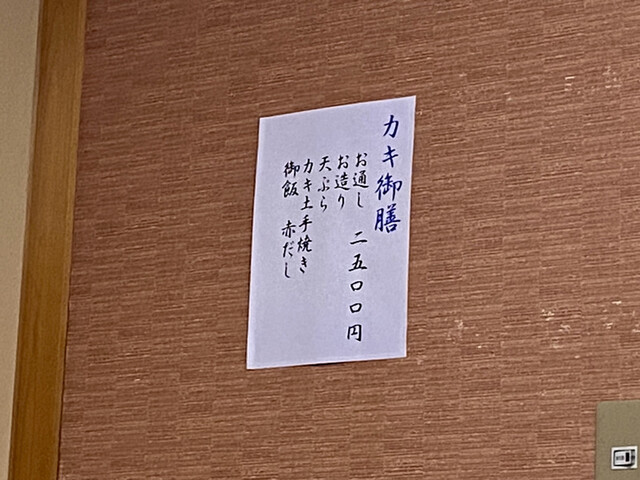 カキ御膳
お通し 二五〇〇円
お造り
天ぷら
カキ土手焼き
御飯 赤だし